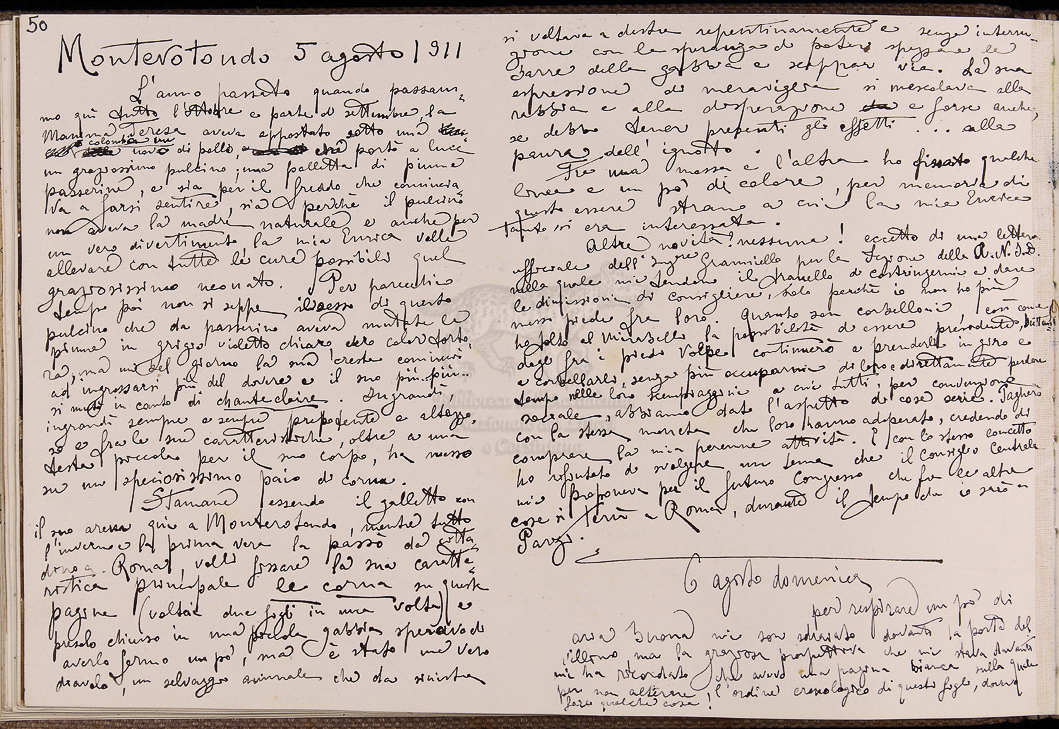 50
Monterotondo 5 agosto 1911
L'anno passato quando passam=
mo qui tutto l'ottobre e parte di settembre, la
Mamma Teresa aveva appostato sotto una
colomba un uovo di pollo, e portò a luce
un graziosissimo pulcino; una palletta di piume
passerine, e sia per il freddo che comincia=
va a farsi sentire, sia perché il pulcino
non aveva la madre naturale, e anche per
un vero divertimento, la mia Enrica volle
allevare con tutte le cure possibili quel
graziosissimo neonato. Per parecchio
tempo poi non si seppe il sesso di questo
pulcino che da passerino aveva mutate le
piume in grigio violetto chiaro color tortora,
ma un bel giorno la sua cresta cominciò
ad ingrossarsi più del dovere e il suo piü-piü-
si mutò in canto di chanteclaire. Ingrandì
ingrandì sempre e sempre prepotente e altezzo
so e fra le sue caratteristiche, oltre a una
testa piccola per il suo corpo, ha messo
su un speciosissimo paio di corna.
Stamane essendo il galletto con
il suo arem qui a Monterotondo, mentre tutto
l'inverno e la primavera la passò da citta=
dino a Roma, volli fissare la sua caratte=
ristica principale le corna su queste
pagine (voltai due fogli in una volta) e
presolo chiuso in una piccola gabbia speravo di
averlo fermo un pò, ma è stato un vero
diavolo, un selvaggio animale che da sinistra
si voltava a destra repentinamente e senza interru=
zione con la speranza di poter spezzare le
sbarre della gabbia e scappar via. La sua
espressione di meraviglia si mescolava alla
rabbia e alla disperazione e forse anche,
se debbo tener presenti gli effetti ... alla
paura dell'ignoto.
Fra una mossa e l'altra ho fissato qualche
linea e un pò di colore, per memoria di
questo essere strano a cui la mia Enrica
tanto si era interessata.
Altre novità? nessuna! eccetto di una lettera
ufficiale dell'Ingre Gramiello per la sezione della A.N.I.D.
nella quale mi tendono il tranello di costringermi a dare
le dimissioni di consigliere, solo perché io non ho più
messi piede fra loro. Quanto son corbelloni, così come
ho tolto al Mirabello la possibilità di essere presidente Brittan
degl'Ing. i presto Volpe, continuerò a prenderli in giro e
a corbellarli, senza più occuparmi di loro e direttamente perdere
tempo nelle loro scempiaggini a cui tutti, per convenzione
sociale, abbiamo dato l'aspetto di cose serie. Pagherò
con la stessa moneta che loro hanno adoperato, credendo di
comprare la mia perenne attività. E con lo stesso concetto
ho rifiutato di svolgere un tema che il Consiglio Centrale
mi proponeva per il futuro Congresso che fra le altre
cose si terrà a Roma, durante il tempo che io sarò a
Parigi.
6 agosto domenica
per respirare un pò di
aria buona mi son sdraiato davanti la porta del
ma la graziosa prospettiva che mi stava davanti
mi ha ricordato che avevo una pagina bianca sulla quale
per non alterare l'ordine cronologico di questi fogli, dovevo
fare qualche cosa!